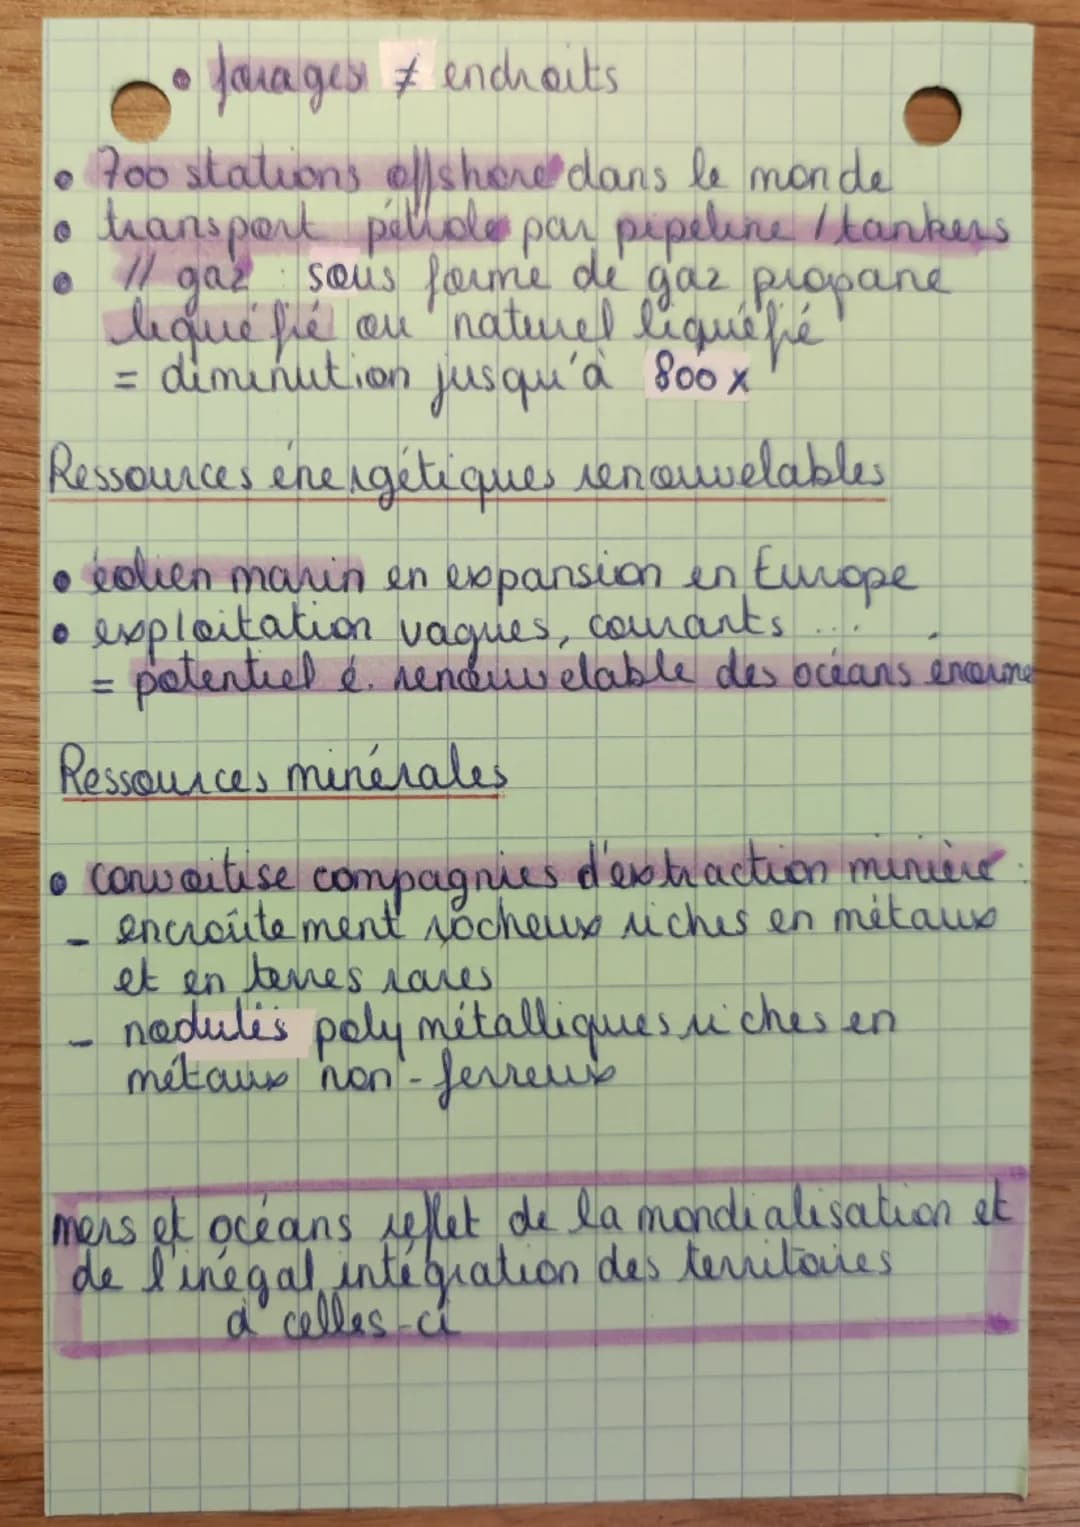 • forages ≠ endroits
• 700 stations offshore dans le monde
• transport pétrole par pipeline / tankers
• // gaz : sous forme de gaz propane
liquéfié ou naturel liquéfié
= diminution jusqu'à 800 x
Ressources énergétiques renouvelables
• éolien marin en expansion en Europe
• exploitation vagues, courants ...
= potentiel é. renouvelable des océans énorme
Ressources minérales
• convoitise compagnies d'extraction minière :
- encroûtement rocheux riches en métaux
et en terres rares
- nodules polymétalliques riches en
métaux non-ferreux
mers et océans reflet de la mondialisation et
de l'inégal intégration des territoires
à celles-ci